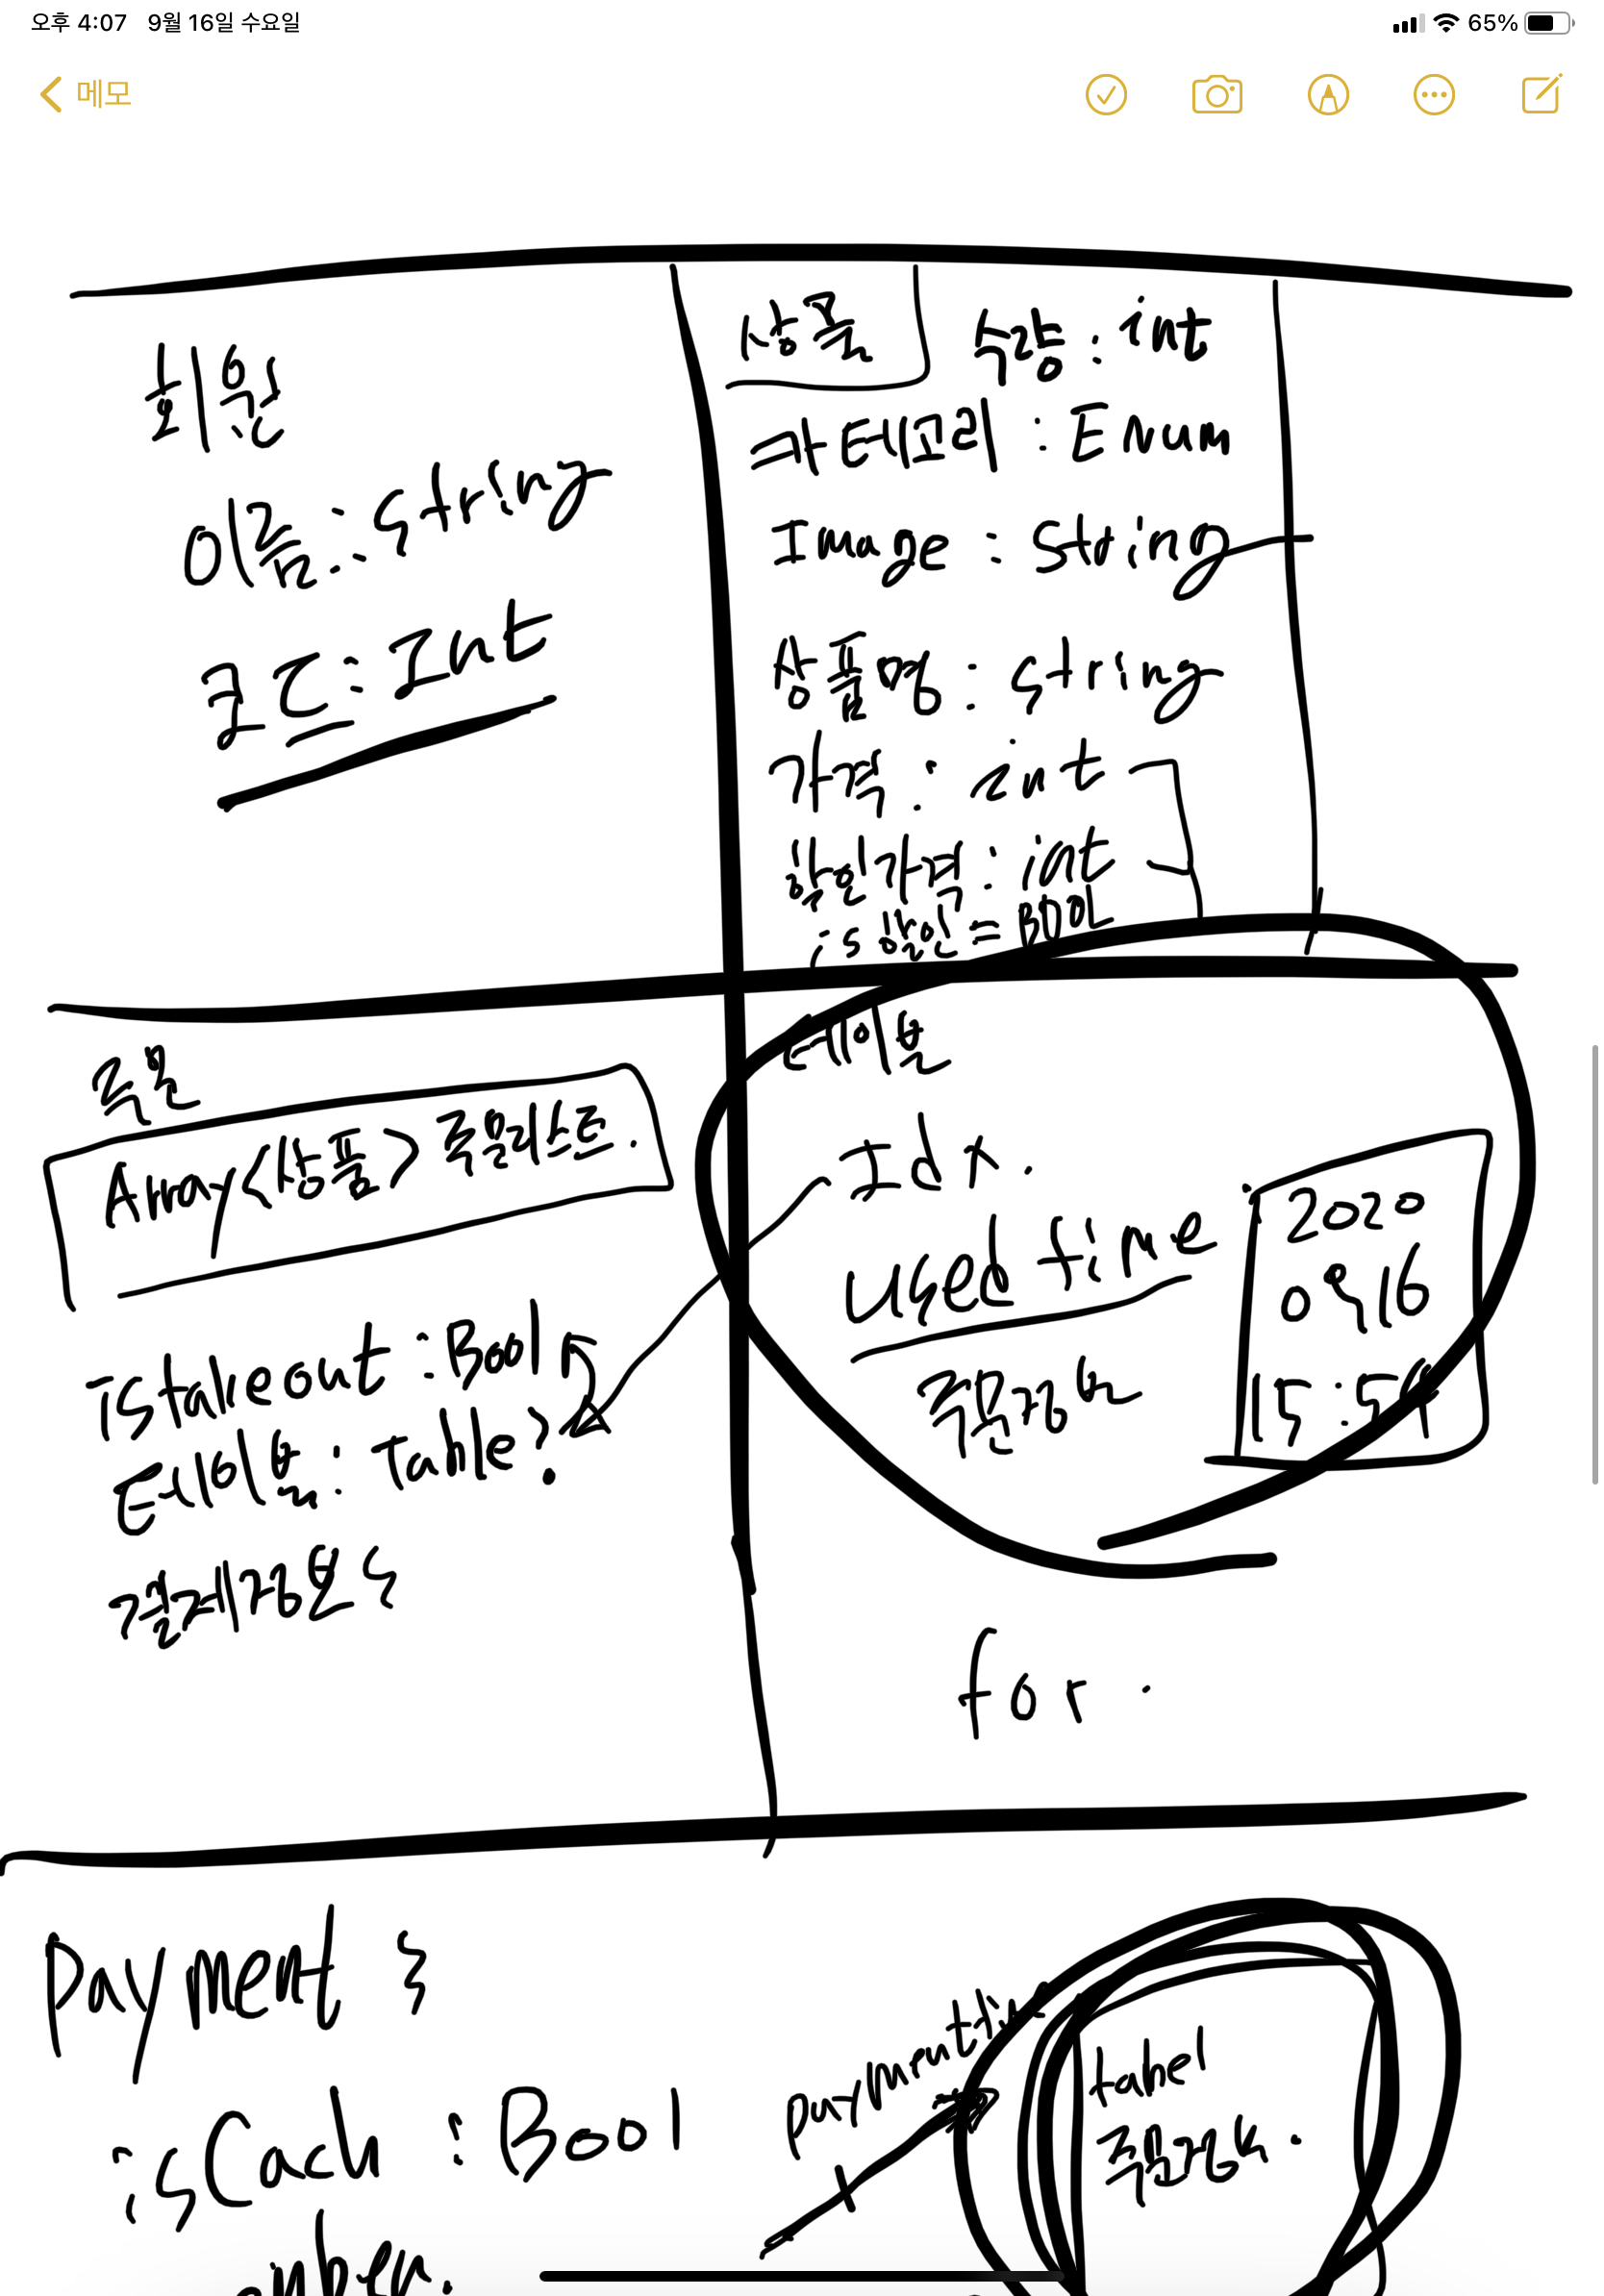 오후 4:07 9월 16일 수요일
65%
메모
회원
이름: string
코드: Int
상품
수량: int
카테고리: Enum
Image: string
상품명: string
가격: int
할인가격: int
is할인 = BOOL
주문
Array<상품> 주문리스트.
istakeout: Bool
테이블: Table?
결제정보
테이블
Idx.
Used time
주문정보
2020
0916
15:59
for.
Payment
isCach: Bool
tabel
주문정보.